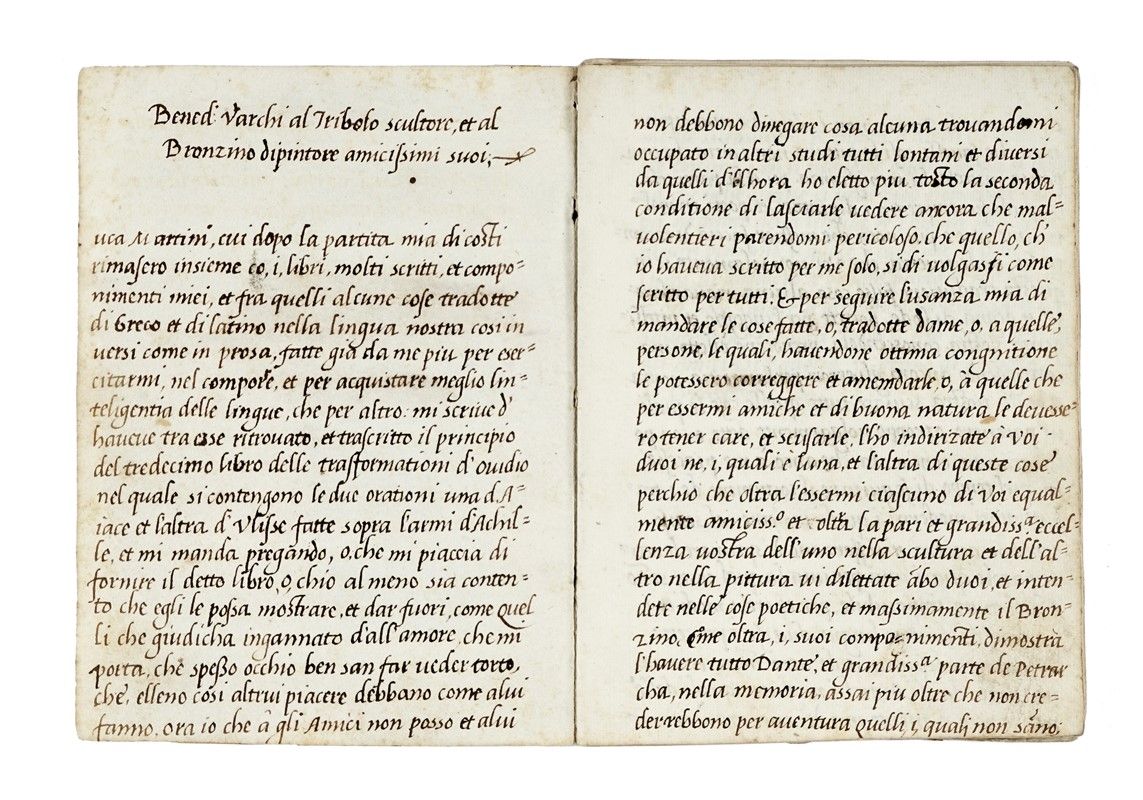 Bened: Varchi al Tribolo scultore, et al
Bronzino dipintore amicissimi suoi;
uca Martini, cui dopo la partita mia di costi
rimasero insieme co, i, libri, molti scritti, et compo=
nimenti miei, et fra quelli alcune cose tradotte
di Greco et di latino nella lingua nostra cosi in
versi come in prosa, fatte gia da me piu per eser=
citarmi, nel compore, et per acquistare meglio lin=
telligentia delle lingue, che per altro: mi scrive d'
haveve tra esse ritrovato, et trascritto il principio
del tredecimo libro delle trasformationi d'ovidio
nel quale si contengono le due orationi una d'A=
iace et l'altra d'Ulisse fatte sopra l'armi d'Achil=
le, et mi manda pregando, o, che mi piaccia di
fornire il detto libro, o, chio al meno sia conten=
to che egli le possa mostrare, et dar fuori, come quel
li che giudicha ingannato d'all'amore, che mi
porta, che spesso occhio ben san far veder torto,
che, elleno cosi altrui piacere debbano come a lui
fanno. ora io che à gli Amici non posso et a lui
non debbono dinegare cosa alcuna trovandomi
occupato in altri studi tutti lontani et diversi
da quelli d'elhora ho eletto piu tosto la seconda
conditione di lasciarle vedere ancora che mal=
volentieri parendomi pericoloso. che quello, ch'
io haveva scritto per me solo, si divolgassi come
scritto per tutti. & per seguire l'usanza mia di
mandare le cose fatte, o, tradotte da me, o, a quelle,
persone, le quali, havendone ottima congnitione
le potessero correggere et amendarle, o, à quelle che
per essermi amiche et di buona natura le devesse=
ro tener care, et scusarle, l'ho indirizate à voi
duoi ne, i, quali è luna, et l'altra di queste cose
perchio che oltra l'essermi ciascuno di voi equal=
mente amiciss.o et oltra la pari et grandiss.a eccel=
lenza vostra dell'uno nella scultura et dell'al=
tro nella pittura vi dilettate ābo duoi, et inten=
dete nelle cose poetiche, et massimamente il Bron=
zino. come oltra, i, suoi compo=nimenti, dimostra
l'havere tutto Dante, et grandiss.a parte de Petrar
cha, nella memoria, assai piu oltre che non cre=
derrebbono per aventura quelli, i, quali non sano;